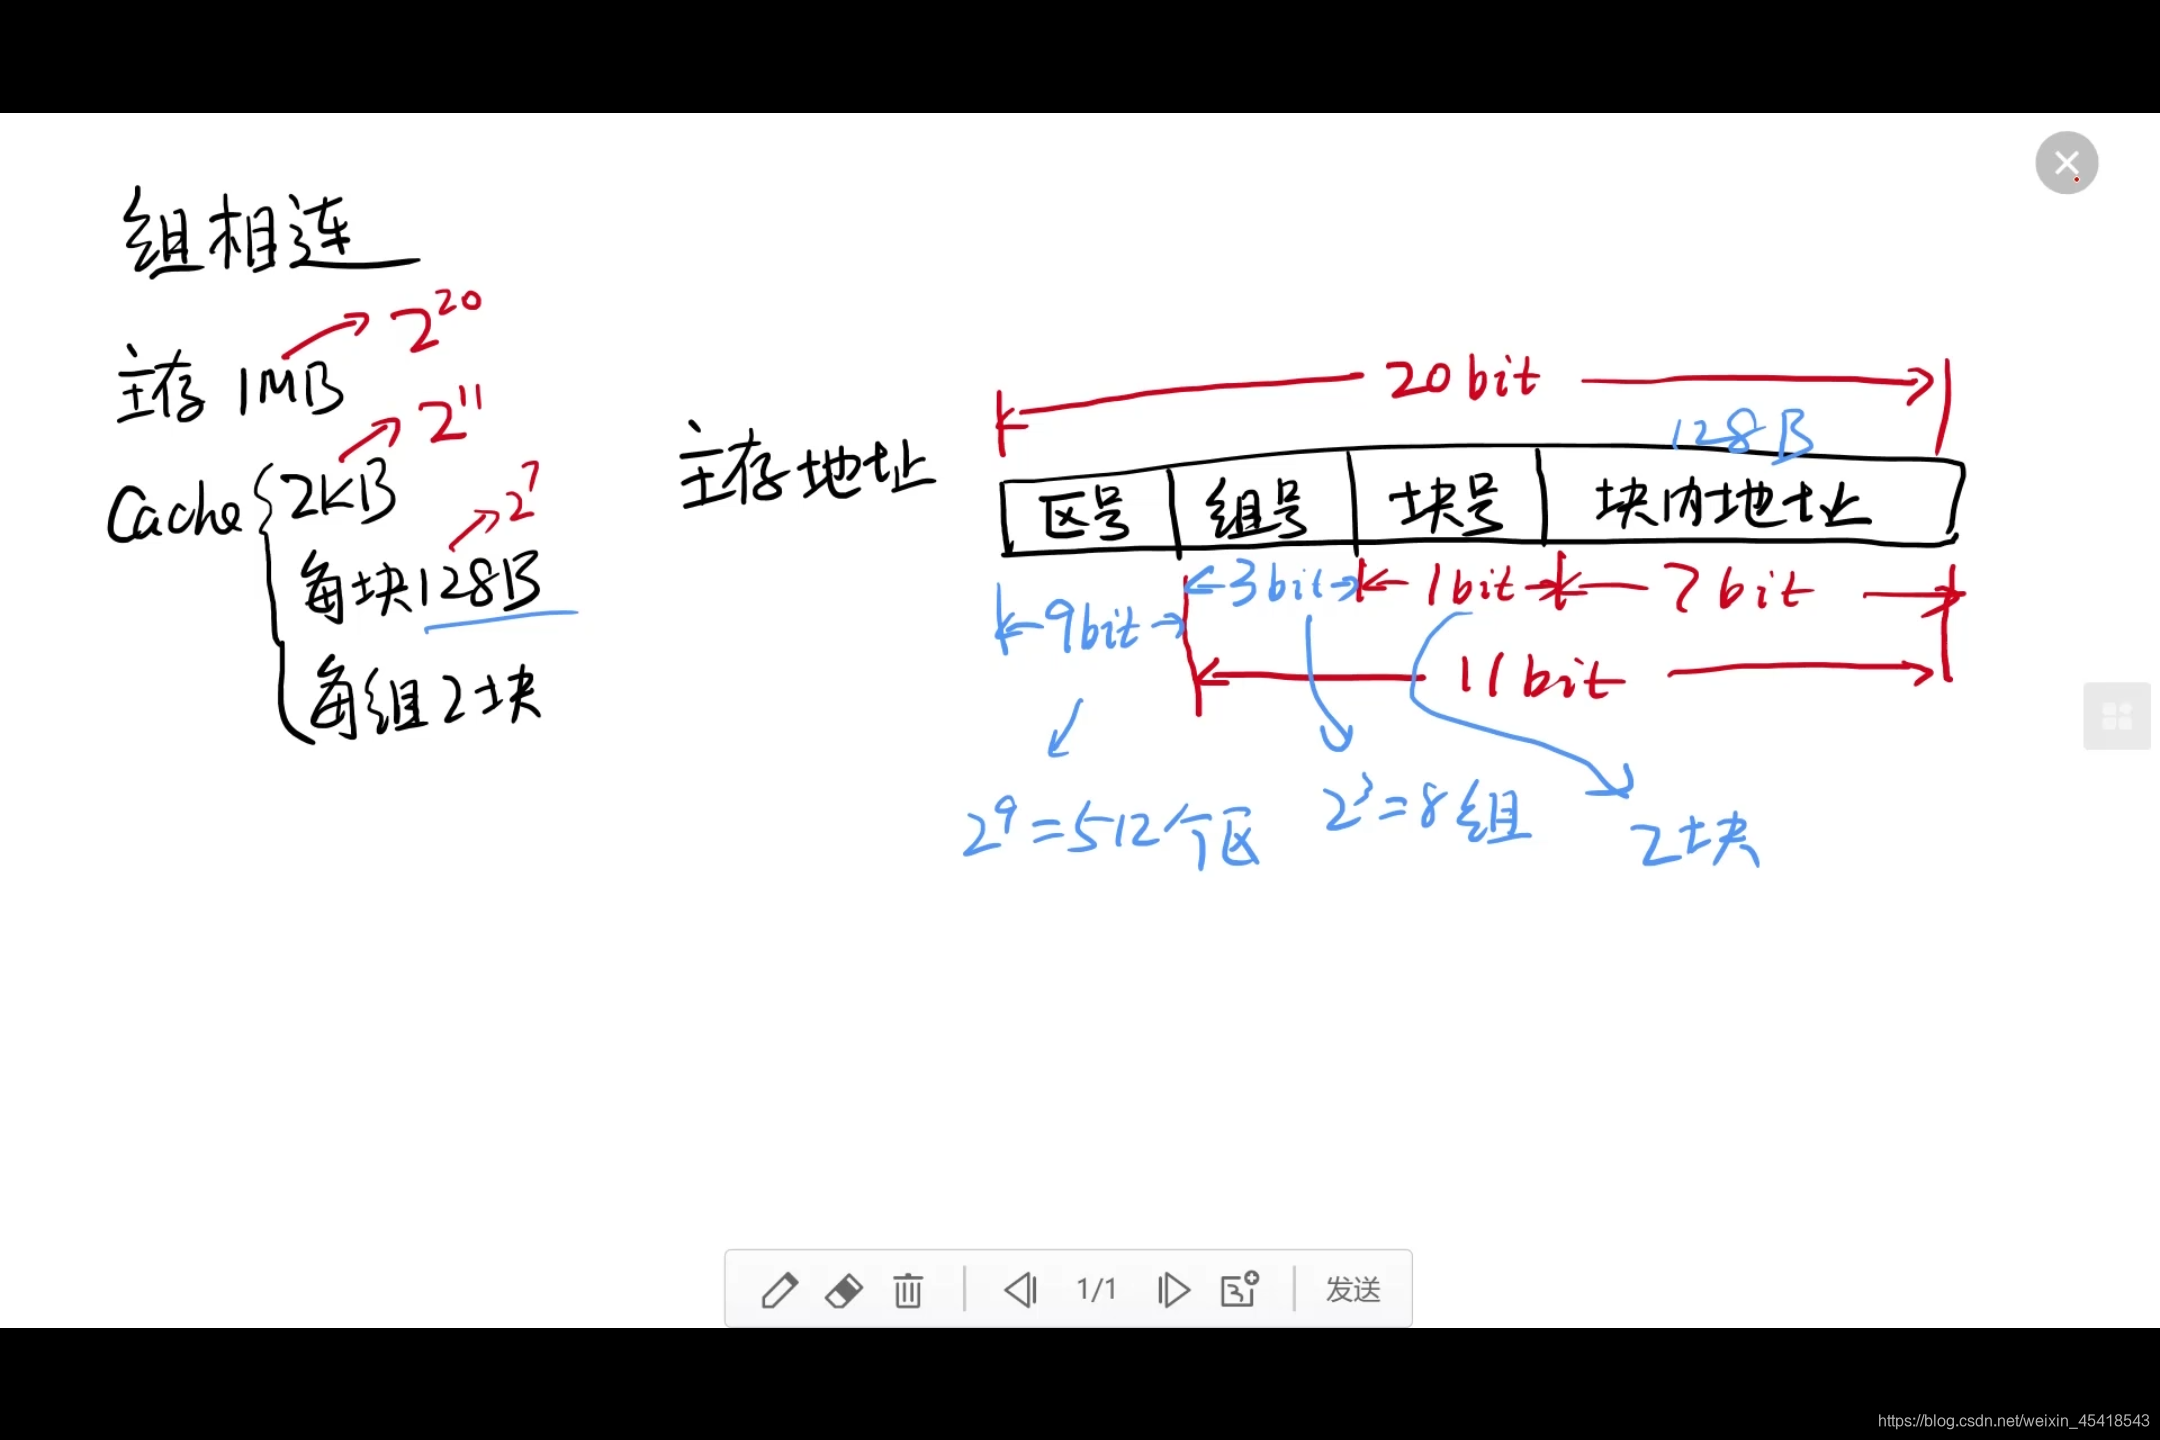 组相连
主存 1MB → 2^20
Cache { 2KB → 2^11
每块128B → 2^7
每组2块
主存地址
20 bit
128B
区号 组号 块号 块内地址
9bit 3bit 1bit 7bit
11 bit
2^9=512个区 2^3=8组 2块
1/1 发送
https://blog.csdn.net/weixin_45418543